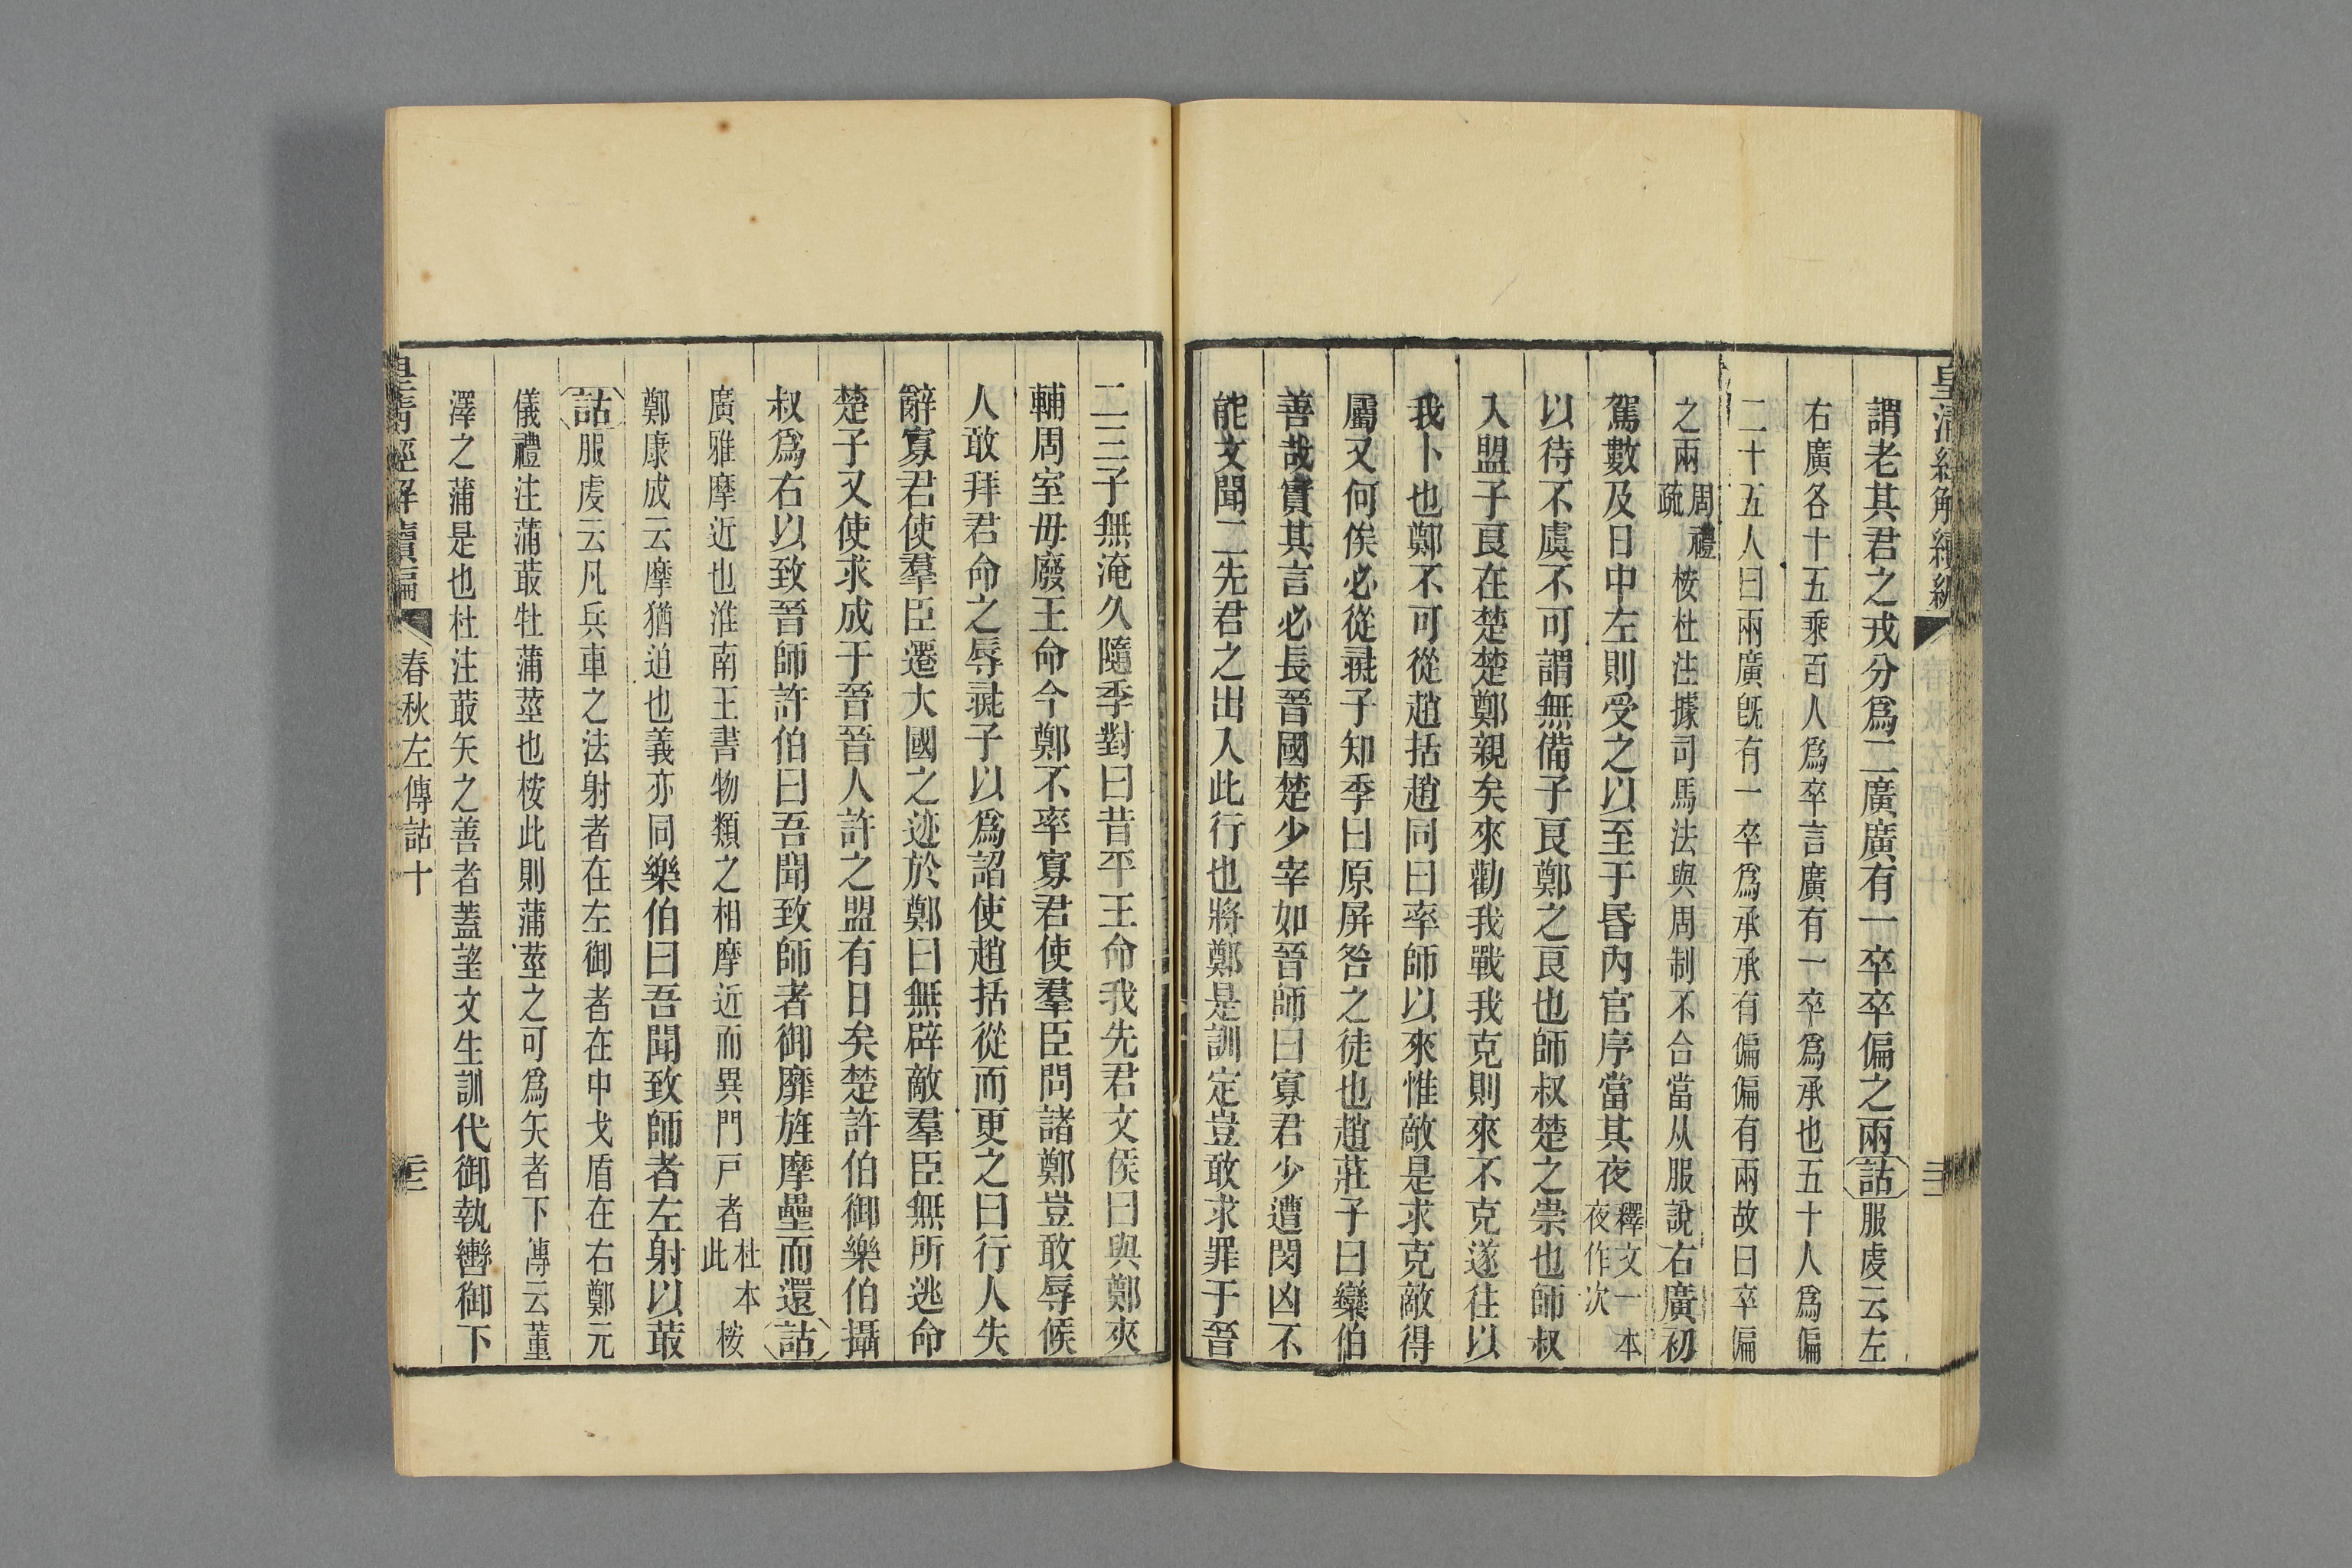 皇清經解續編
謂老其君之戎分爲二廣廣有一卒卒偏之兩詁服虔云左
右廣各十五乘百人爲卒言廣有一卒爲承也五十人爲偏
二十五人曰兩廣旣有一卒爲承承有偏偏有兩故曰卒偏
之兩周禮疏桉杜注據司馬法與周制不合當从服說右廣初
駕數及日中左則受之以至于昏內官序當其夜釋文一本夜作次
以待不虞不可謂無備子良鄭之良也師叔楚之崇也師叔
入盟子良在楚楚鄭親矣來勸我戰我克則來不克遂往以
我卜也鄭不可從趙括趙同曰率師以來惟敵是求克敵得
屬又何俟必從彘子知季曰原屏咎之徒也趙莊子曰欒伯
善哉實其言必長晉國楚少宰如晉師曰寡君少遭閔凶不
能文聞二先君之出入此行也將鄭是訓定豈敢求罪于晉
二三子無淹久隨季對曰昔平王命我先君文侯曰與鄭夾
輔周室毋廢王命今鄭不率寡君使羣臣問諸鄭豈敢辱候
人敢拜君命之辱彘子以爲諂使趙括從而更之曰行人失
辭寡君使羣臣遷大國之迹於鄭曰無辟敵羣臣無所逃命
楚子又使求成于晉晉人許之盟有日矣楚許伯御樂伯攝
叔爲右以致晉師許伯曰吾聞致師者御靡旌摩壘而還詁
廣雅摩近也淮南王書物類之相摩近而異門戸者杜本此桉
鄭康成云摩猶迫也義亦同樂伯曰吾聞致師者左射以菆
詁服虔云凡兵車之法射者在左御者在中戈盾在右鄭元
儀禮注蒲菆牡蒲莖也桉此則蒲莖之可爲矢者下傳云董
澤之蒲是也杜注菆矢之善者蓋望文生訓代御執轡御下
皇清經解續編
春秋左傳詁十